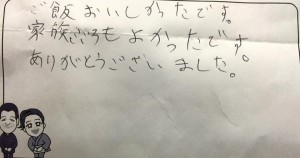 ご飯おいしかったです。
家族ぶろもよかったです。
ありがとうございました。